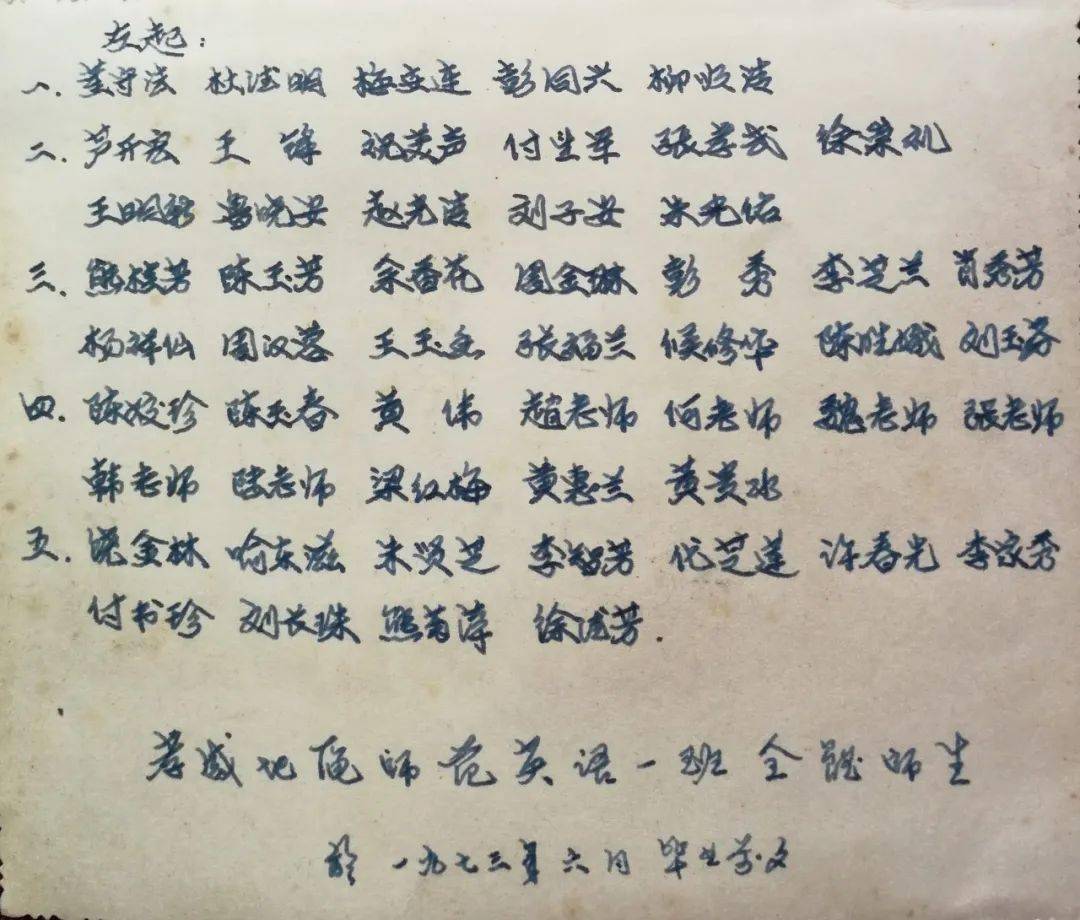 左起：
一. 董守法 杜法明 梅交连 彭同兴 柳收洁
二. 芦升宏 王锋 祝美声 付生军 張孝武 徐荣礼
王明新 鲁晓安 赵光清 刘子安 朱光佑
三. 熊桂芳 陈玉芳 余香花 周金琳 彭秀 李芝兰 肖秀芳
杨祥仙 周汉蓉 王玉 张福兰 候修华 陈胜娥 刘玉容
四. 陈姣珍 陈玉春 黄伟 趙老师 何老师 魏老师 張老师
韩老师 陆老师 梁红梅 黄惠兰 黄冰
五. 金林 喻东滋 朱贤芝 李智芳 倪芝莲 许春光 李家秀
付书珍 刘长珠 熊菊萍 徐成芳.
孝感地區师范英语一班全體师生
於 一九七三年六月毕业前夕